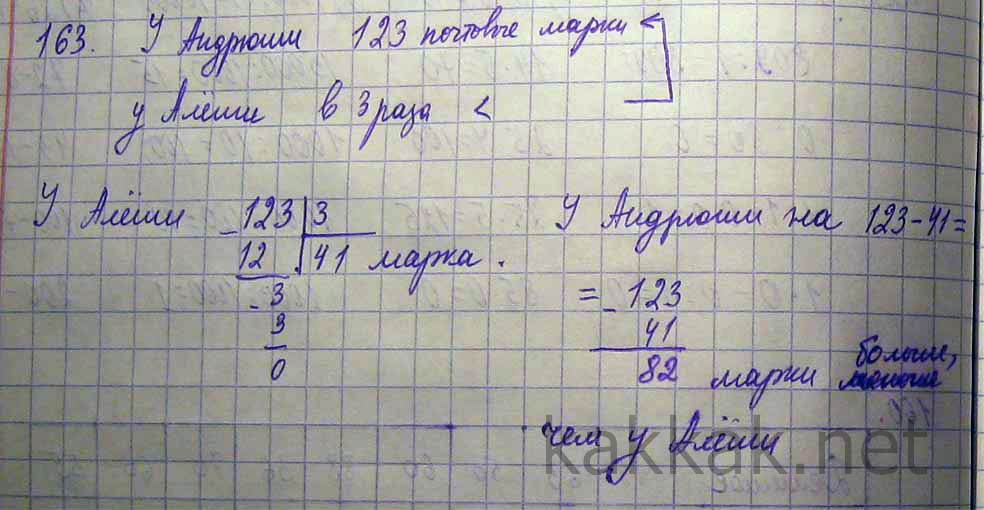 163. У Андрюши 123 почтовые марки <
у Алёши в 3 раза <
У Алёши - 123 | 3
12 | 41 марка.
- 3
3
0
У Андрюши на 123 - 41 =
= - 123
41
82 марки больше,
чем у Алёши
kakkak.net